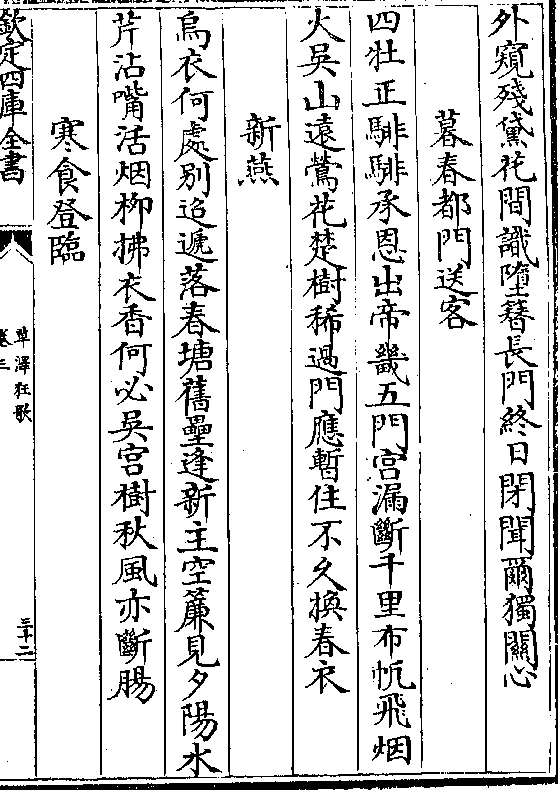 外窺殘黛花間識墮簪長門終日閉聞爾獨關心
暮春都門送客
四牡正騑騑承恩出帝畿五門宮漏斷千里布帆飛烟
火吳山遠鶯花楚樹稀過門應暫住不久換春衣
新燕
烏衣何處别迢遞落春塘舊壘逢新主空簾見夕陽水
芹沾嘴活烟柳拂衣香何必吳宮樹秋風亦斷腸
寒食登臨
欽定四庫全書
草澤狂歌
卷三
三十二